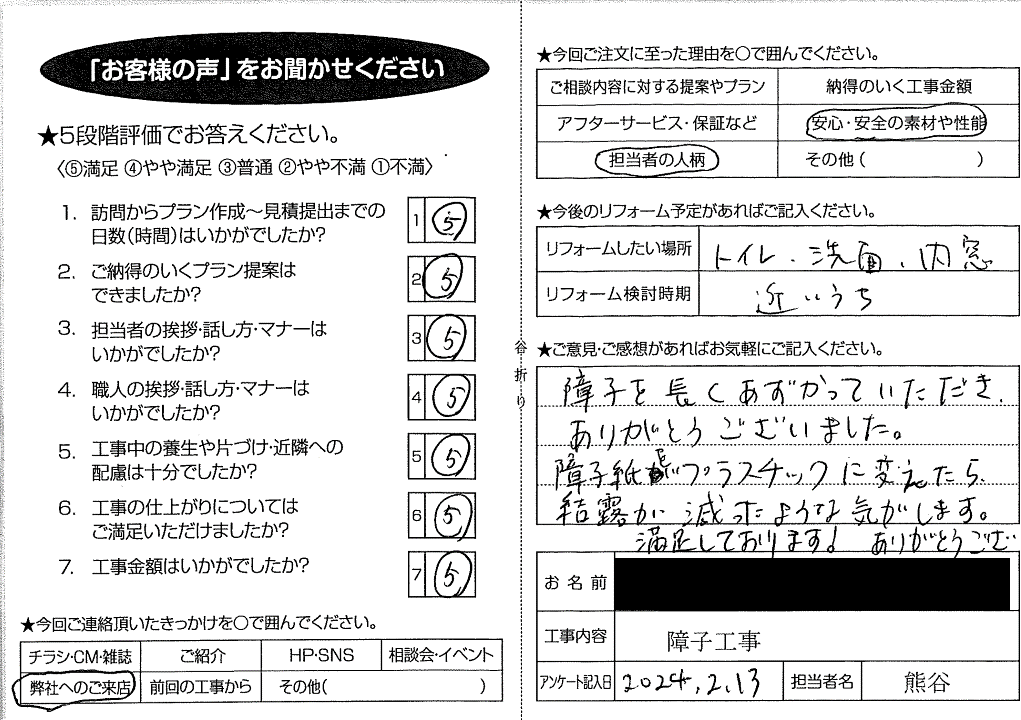 「お客様の声」をお聞かせください
★5段階評価でお答えください。
〈⑤満足 ④やや満足 ③普通 ②やや不満 ①不満〉
1. 訪問からプラン作成～見積提出までの
日数(時間)はいかがでしたか?
1 5
2. ご納得のいくプラン提案は
できましたか?
2 5
3. 担当者の挨拶・話し方・マナーは
いかがでしたか?
3 5
4. 職人の挨拶・話し方・マナーは
いかがでしたか?
4 5
5. 工事中の養生や片づけ・近隣への
配慮は十分でしたか?
5 5
6. 工事の仕上がりについては
ご満足いただけましたか?
6 5
7. 工事金額はいかがでしたか?
7 5
★今回ご連絡頂いたきっかけを○で囲んでください。
チラシ・CM・雑誌 ご紹介 HP・SNS 相談会・イベント
弊社へのご来店 前回の工事から その他( )
谷折り
★今回ご注文に至った理由を○で囲んでください。
ご相談内容に対する提案やプラン 納得のいく工事金額
アフターサービス・保証など 安心・安全の素材や性能
担当者の人柄 その他( )
★今後のリフォーム予定があればご記入ください。
リフォームしたい場所 トイレ・洗面、内窓
リフォーム検討時期 近いうち
★ご意見・ご感想があればお気軽にご記入ください。
障子を長くあずかっていただき、
ありがとうございました。
障子紙をプラスチックに変えたら、
結露が減ったような気がします。
満足しております! ありがとうござい
お名前
工事内容 障子工事
アンケート記入日 2024.2.13 担当者名 熊谷